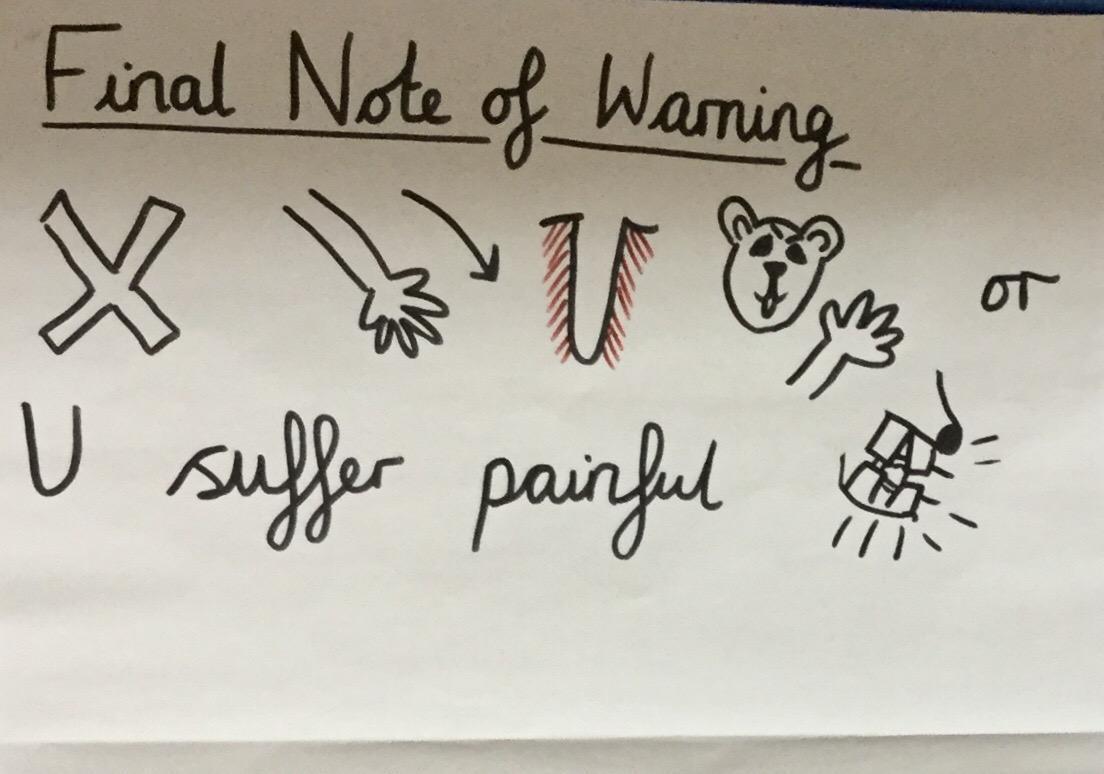 Final Note of Warning
or
U suffer painful